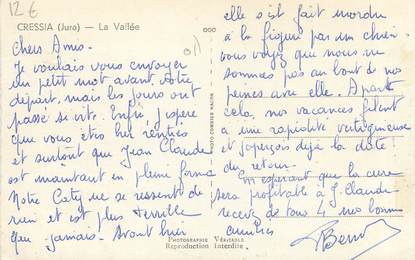 12€
CRESSIA (Jura) — La Vallée
Chers Amis -
Je voulais vous envoyer
un petit mot avant votre
départ, mais les jours ont
passé si vite. Enfin, j'espère
que vous êtes bien rentrés
et surtout que Jean Claude
est maintant en pleine forme
Notre Caty ne se ressent de
rien et est plus terrible
que jamais. Avant hier
elle s'est fait mordre
à la figure par un chien
vous voyez que nous ne
sommes pas au bout de nos
peines avec elle. A part
cela, nos vacances filent
a une rapidité vertigineuse
et j'aperçois déjà la date
du retour.
En espérant que la cure
sera profitable à J. Claude
recevez de nous 4 nos bonnes
amitiés
PHOTO COMBIER MACON
Photographie Véritable
Reproduction Interdite